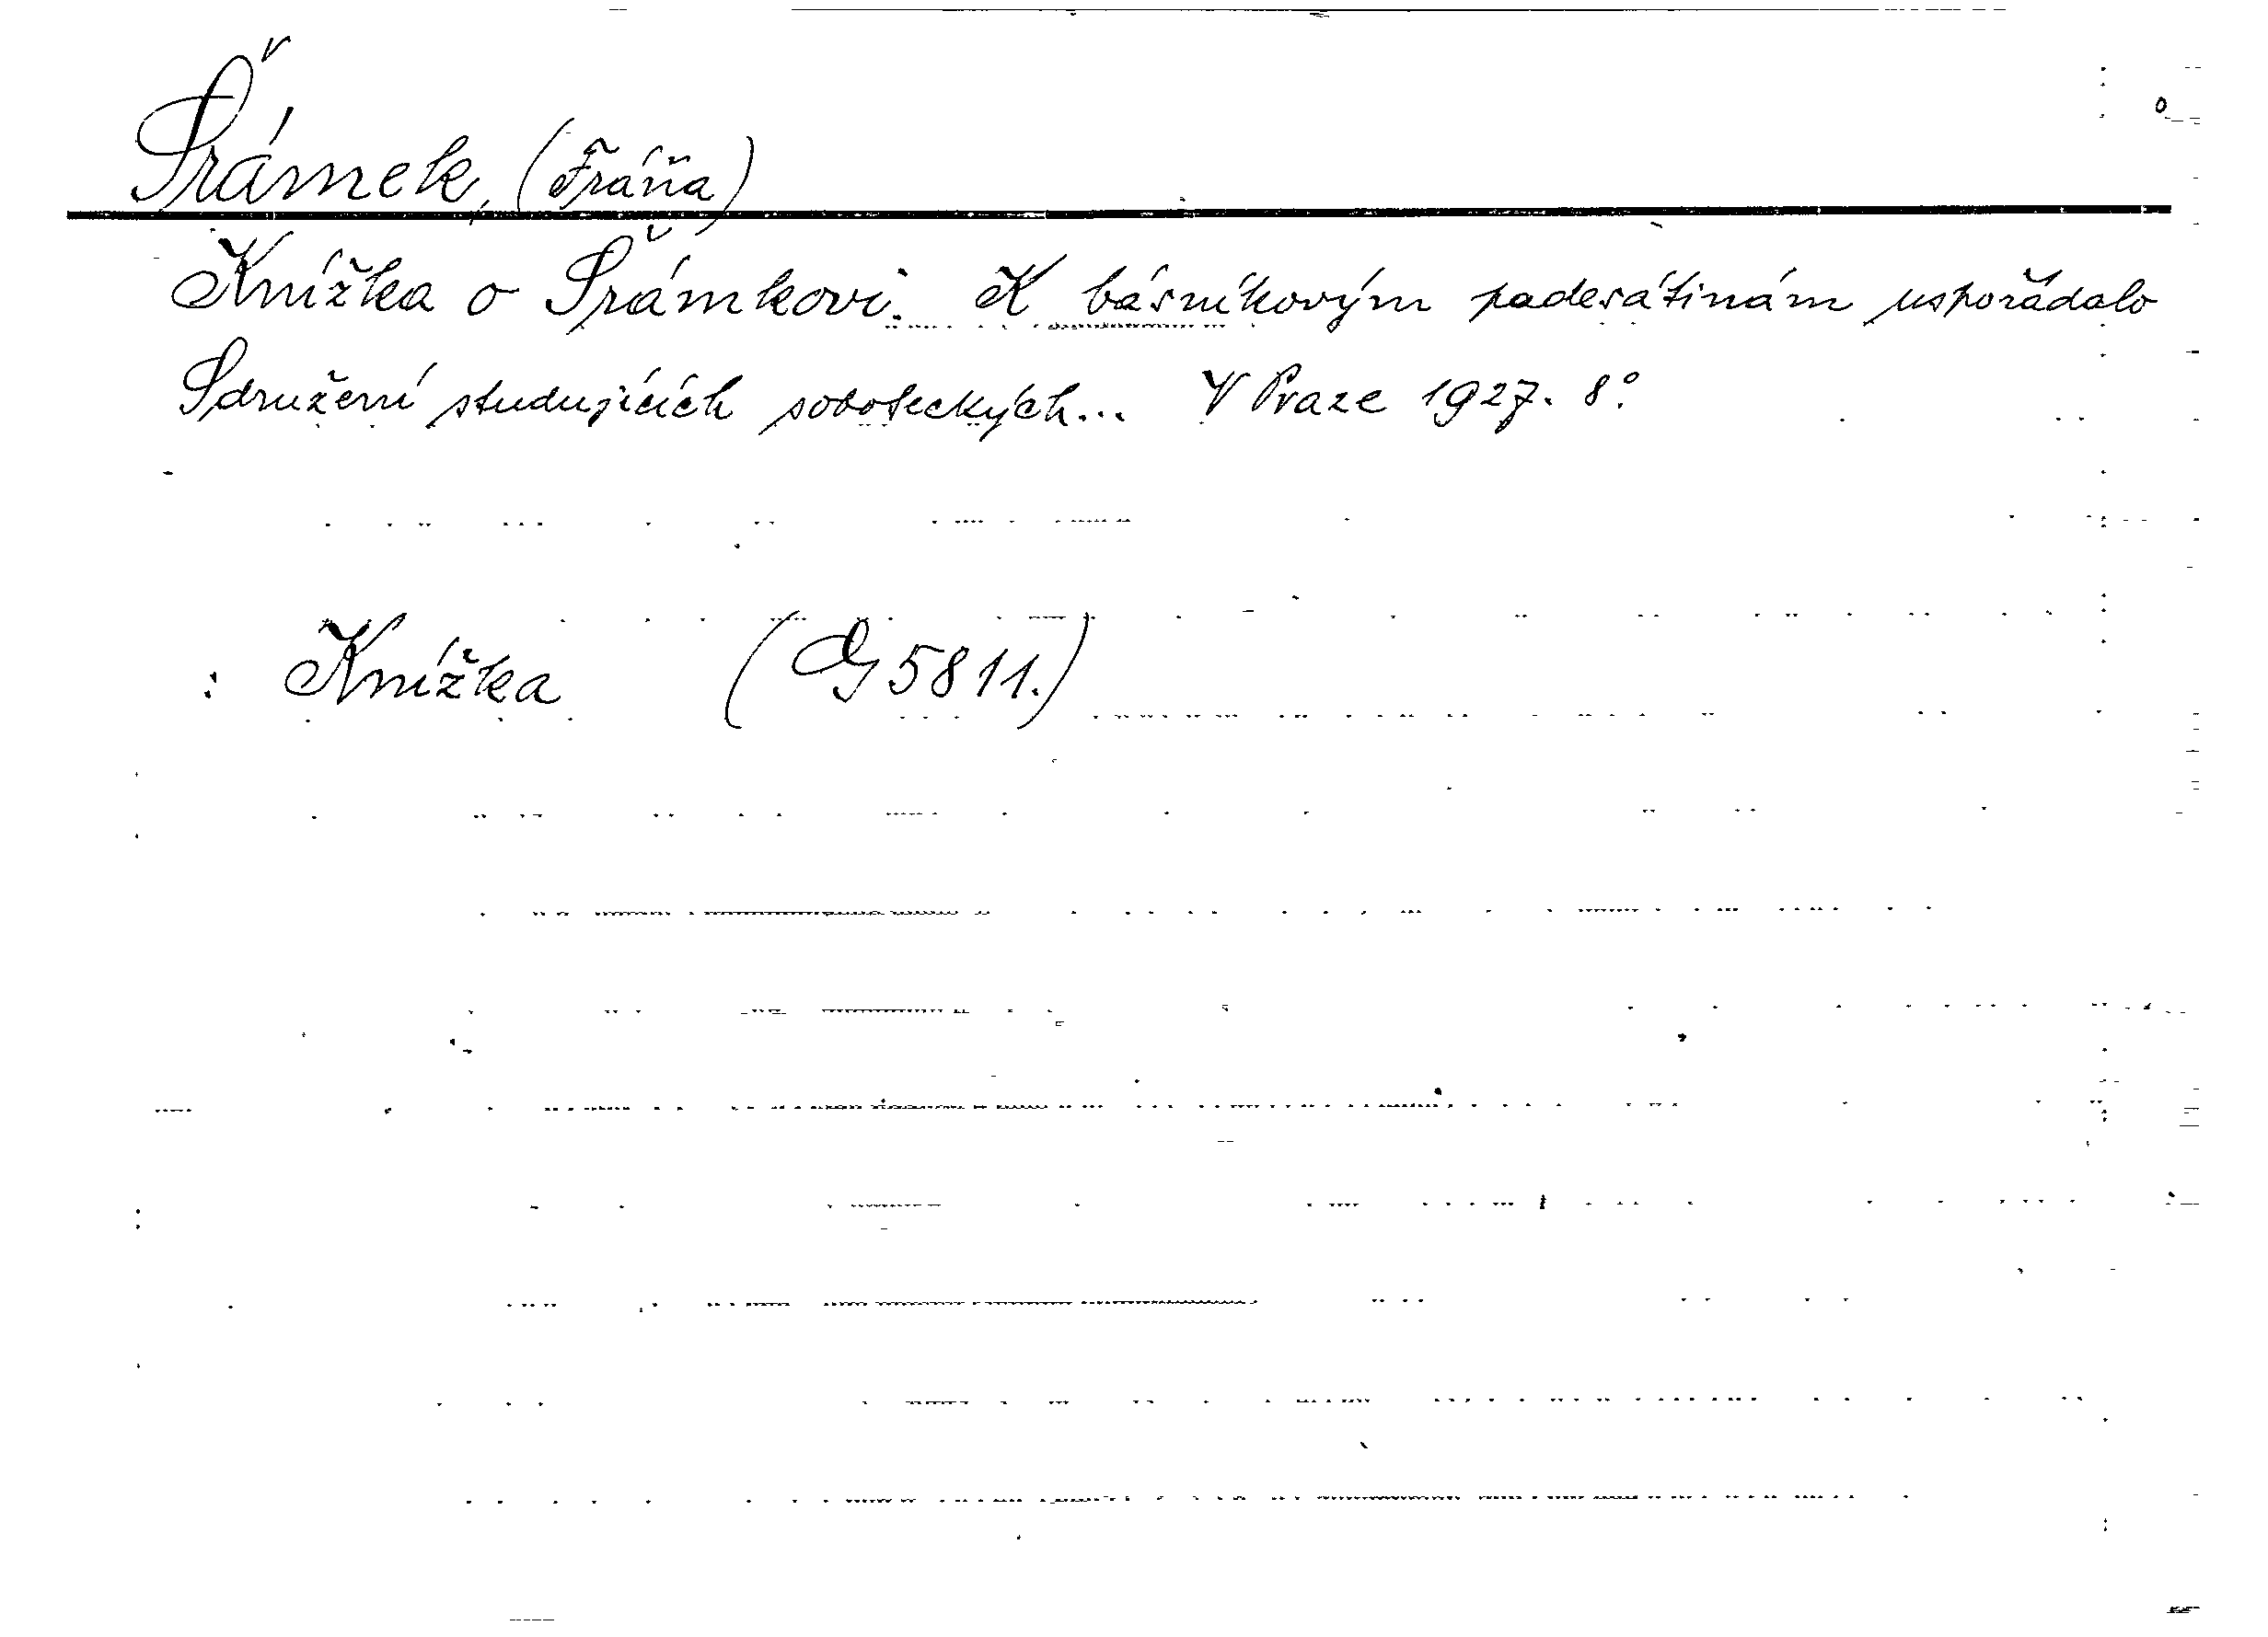 Šrámek, (Fráňa)
Knížka o Šrámkovi. K básníkovým padesátinám uspořádalo
Sdružení studujících soboteckých... V Praze 1927. 8°.
: Knížka (G 5811.)